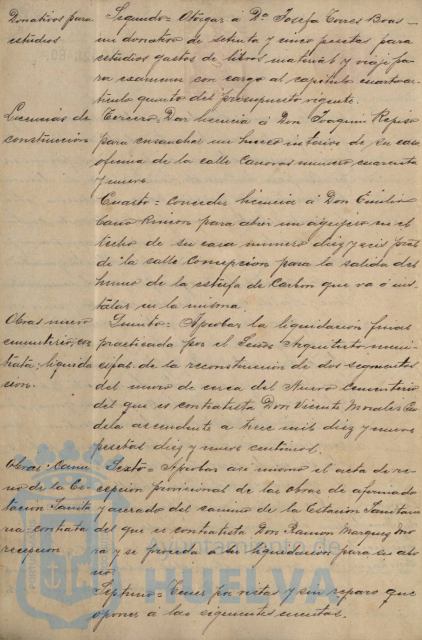 Donativos para
estudios
Segundo = Otorgar á Dª Josefa Torres Boas
un donativo de setenta y cinco pesetas para
estudios gastos de libros material y viaje pa
ra examenes con cargo al capitulo cuarto ar-
ticulo quinto del presupuesto vigente.
Licencias de
construccion
Tercero = Dar licencia á Don Joaquin Repiso
para ensanchar un hueco interior de su casa
oficina de la calle Canovas numero cuarenta
y nueve
Cuarto = Conceder licencia á Don Emilio
Cano Rincon para abrir un agujero en el
techo de su casa numero diez y seis
de la calle Concepcion para la salida del
humo de la estufa de Carbon que va á ins
talar en la misma.
Obras nuevo
cementerio, con
trata; liquida
cion.
Quinto = Aprobar la liquidacion final
practicada por el Señor Arquitecto muni-
cipal de la reconstruccion de dos segmentos
del muro de cerca del Nuevo Cementerio
del que es contratista Don Vicente Morales Can
dela ascendente á trece mil diez y nueve
pesetas diez y nueve centimos.
Obras Cami
no de la Es-
tacion Sanita
ria contrata
recepcion
Sexto = Aprobar asi mismo el acta de re-
cepcion provisional de las obras de afirmado
y acerado del camino de la Estacion Sanitaria
del que es contratista Don Ramon Marquez Mo
ra y se proceda á su liquidacion para su abo
no.
Septimo = Tener por vistas y sin reparo que
oponer á las siguientes cuentas.
Ayuntamiento de
HUELVA